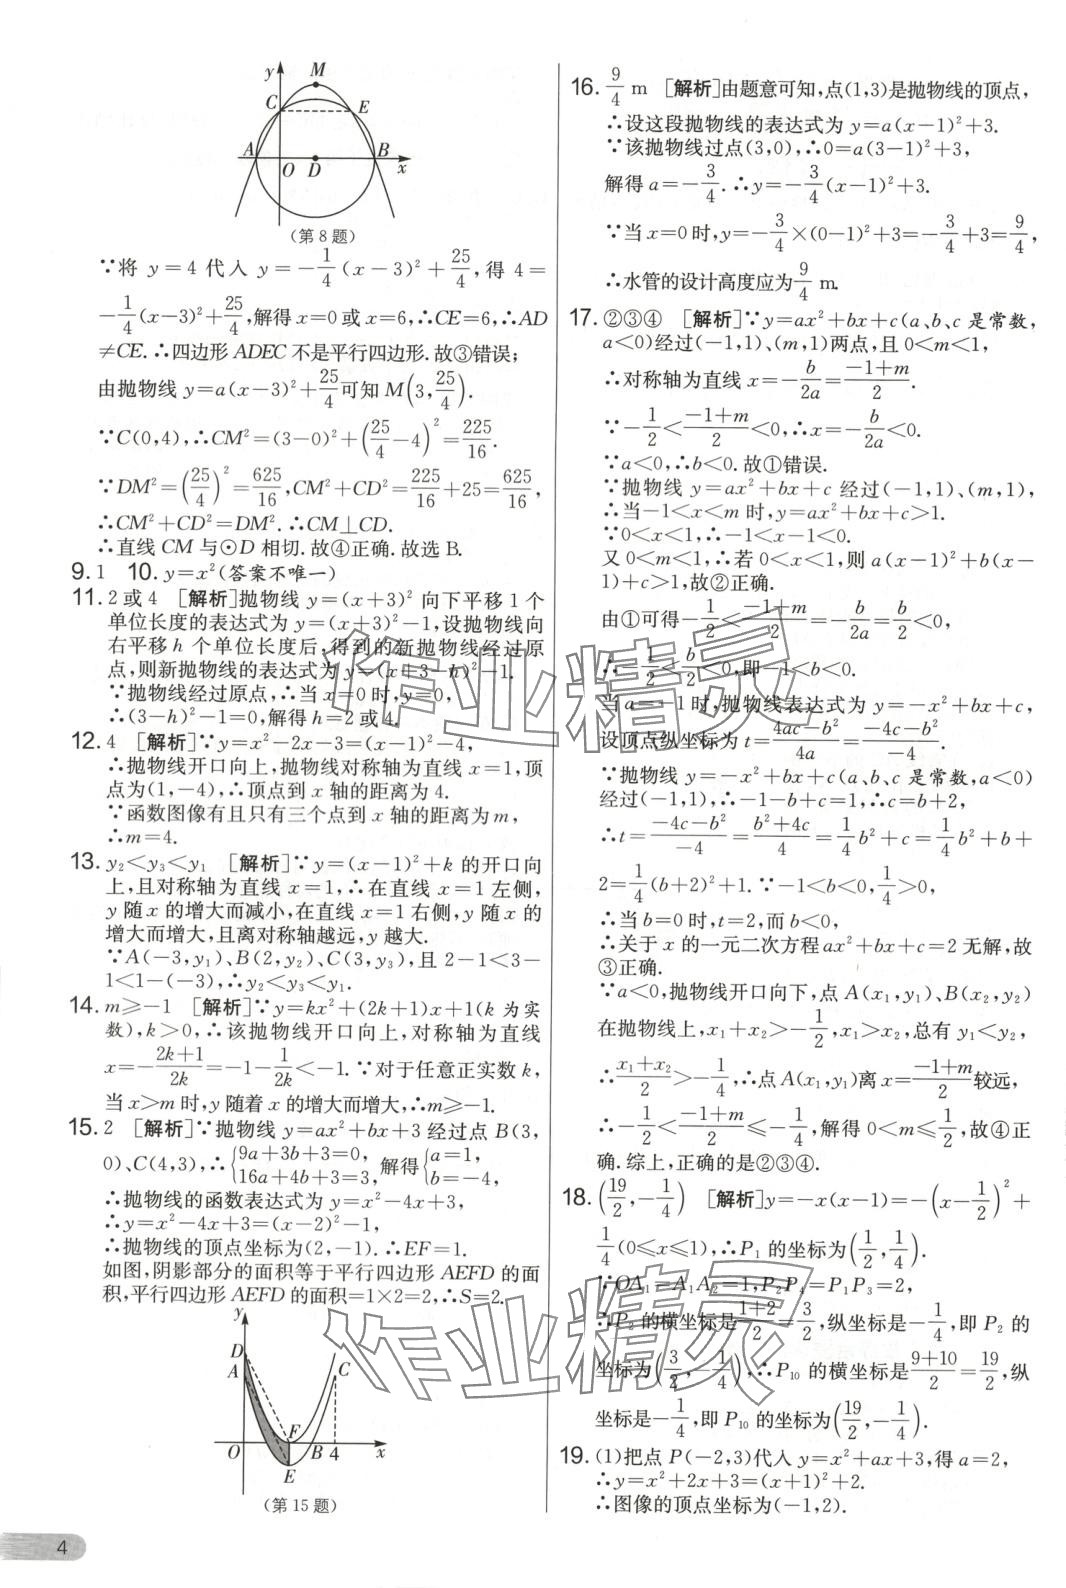 y
M
C
E
A
B
O
D
x
(第8题)
∵将 y=4 代入 y=-1/4(x-3)²+25/4,得 4=
-1/4(x-3)²+25/4,解得x=0或x=6,∴CE=6,∴AD
≠CE.∴四边形ADEC不是平行四边形.故③错误;
由抛物线y=a(x-3)²+25/4可知M(3,25/4).
∵C(0,4),∴CM²=(3-0)²+(25/4-4)²=225/16.
∵DM²=(25/4)²=625/16,CM²+CD²=225/16+25=625/16,
∴CM²+CD²=DM².∴CM⊥CD.
∴直线CM与⊙D相切.故④正确.故选B.
9.1 10.y=x²(答案不唯一)
11.2或4 [解析]抛物线y=(x+3)²向下平移1个
单位长度的表达式为y=(x+3)²-1,设抛物线向
右平移h个单位长度后,得到的新抛物线经过原
点,则新抛物线的表达式为y=(x+3-h)²-1.
∵抛物线经过原点,∴当x=0时,y=0,
∴(3-h)²-1=0,解得h=2或4.
12.4 [解析]∵y=x²-2x-3=(x-1)²-4,
∴抛物线开口向上,抛物线对称轴为直线x=1,顶
点为(1,-4),∴顶点到x轴的距离为4.
∵函数图像有且只有三个点到x轴的距离为m,
∴m=4.
13.y₂<y₃<y₁ [解析]∵y=(x-1)²+k的开口向
上,且对称轴为直线x=1,∴在直线x=1左侧,
y随x的增大而减小,在直线x=1右侧,y随x的
增大而增大,且离对称轴越远,y越大.
∵A(-3,y₁)、B(2,y₂)、C(3,y₃),且2-1<3-
1<1-(-3),∴y₂<y₃<y₁.
14.m≥-1 [解析]∵y=kx²+(2k+1)x+1(k为实
数),k>0,∴该抛物线开口向上,对称轴为直线
x=-(2k+1)/2k=-1-1/2k<-1.∵对于任意正实数k,
当x>m时,y随着x的增大而增大,∴m≥-1.
15.2 [解析]∵抛物线y=ax²+bx+3经过点B(3,
0)、C(4,3),∴{9a+3b+3=0, 16a+4b+3=3, 解得{a=1, b=-4,
∴抛物线的函数表达式为y=x²-4x+3,
∴y=x²-4x+3=(x-2)²-1,
∴抛物线的顶点坐标为(2,-1).∴EF=1.
如图,阴影部分的面积等于平行四边形AEFD的面
积,平行四边形AEFD的面积=1×2=2,∴S=2.
y
D
A
C
F
O
B
4
x
E
(第15题)
4
16.9/4 m [解析]由题意可知,点(1,3)是抛物线的顶点,
∴设这段抛物线的表达式为y=a(x-1)²+3.
∵该抛物线过点(3,0),∴0=a(3-1)²+3,
解得a=-3/4.∴y=-3/4(x-1)²+3.
∵当x=0时,y=-3/4×(0-1)²+3=-3/4+3=9/4,
∴水管的设计高度应为9/4 m.
17.②③④ [解析]∵y=ax²+bx+c(a、b、c是常数,
a<0)经过(-1,1)、(m,1)两点,且0<m<1,
∴对称轴为直线x=-b/2a=(-1+m)/2.
∵-1/2<(-1+m)/2<0,∴x=-b/2a<0.
∵a<0,∴b<0.故①错误.
∵抛物线y=ax²+bx+c经过(-1,1)、(m,1),
∴当-1<x<m时,y=ax²+bx+c>1.
∵0<x<1,∴-1<x-1<0.
又0<m<1,∴若0<x<1,则a(x-1)²+b(x-
1)+c>1,故②正确.
由①可得-1/2<(-1+m)/2=-b/2a=b/2<0,
∴-1/2<b/2<0,即-1<b<0.
当a=-1时,抛物线表达式为y=-x²+bx+c,
设顶点纵坐标为t=(4ac-b²)/4a=(-4c-b²)/-4.
∵抛物线y=-x²+bx+c(a、b、c是常数,a<0)
经过(-1,1),∴-1-b+c=1,∴c=b+2,
∴t=(-4c-b²)/-4=(b²+4c)/4=1/4b²+c=1/4b²+b+
2=1/4(b+2)²+1.∵-1<b<0,1/4>0,
∴当b=0时,t=2,而b<0,
∴关于x的一元二次方程ax²+bx+c=2无解,故
③正确.
∵a<0,抛物线开口向下,点A(x₁,y₁)、B(x₂,y₂)
在抛物线上,x₁+x₂>-1/2,x₁>x₂,总有y₁<y₂,
∴(x₁+x₂)/2>-1/4,∴点A(x₁,y₁)离x=(-1+m)/2较远,
∴-1/2<(-1+m)/2≤-1/4,解得0<m≤1/2,故④正
确.综上,正确的是②③④.
18.(19/2,-1/4) [解析]y=-x(x-1)=-(x-1/2)²+
1/4(0≤x≤1),∴P₁的坐标为(1/2,1/4).
∵OA₁=A₁A₂=1,P₂P₄=P₁P₃=2,
∴P₂的横坐标是(1+2)/2=3/2,纵坐标是-1/4,即P₂的
坐标为(3/2,-1/4),∴P₁₀的横坐标为(9+10)/2=19/2,纵
坐标是-1/4,即P₁₀的坐标为(19/2,-1/4).
19.(1)把点P(-2,3)代入y=x²+ax+3,得a=2,
∴y=x²+2x+3=(x+1)²+2.
∴图像的顶点坐标为(-1,2).
作业精灵
作业精灵